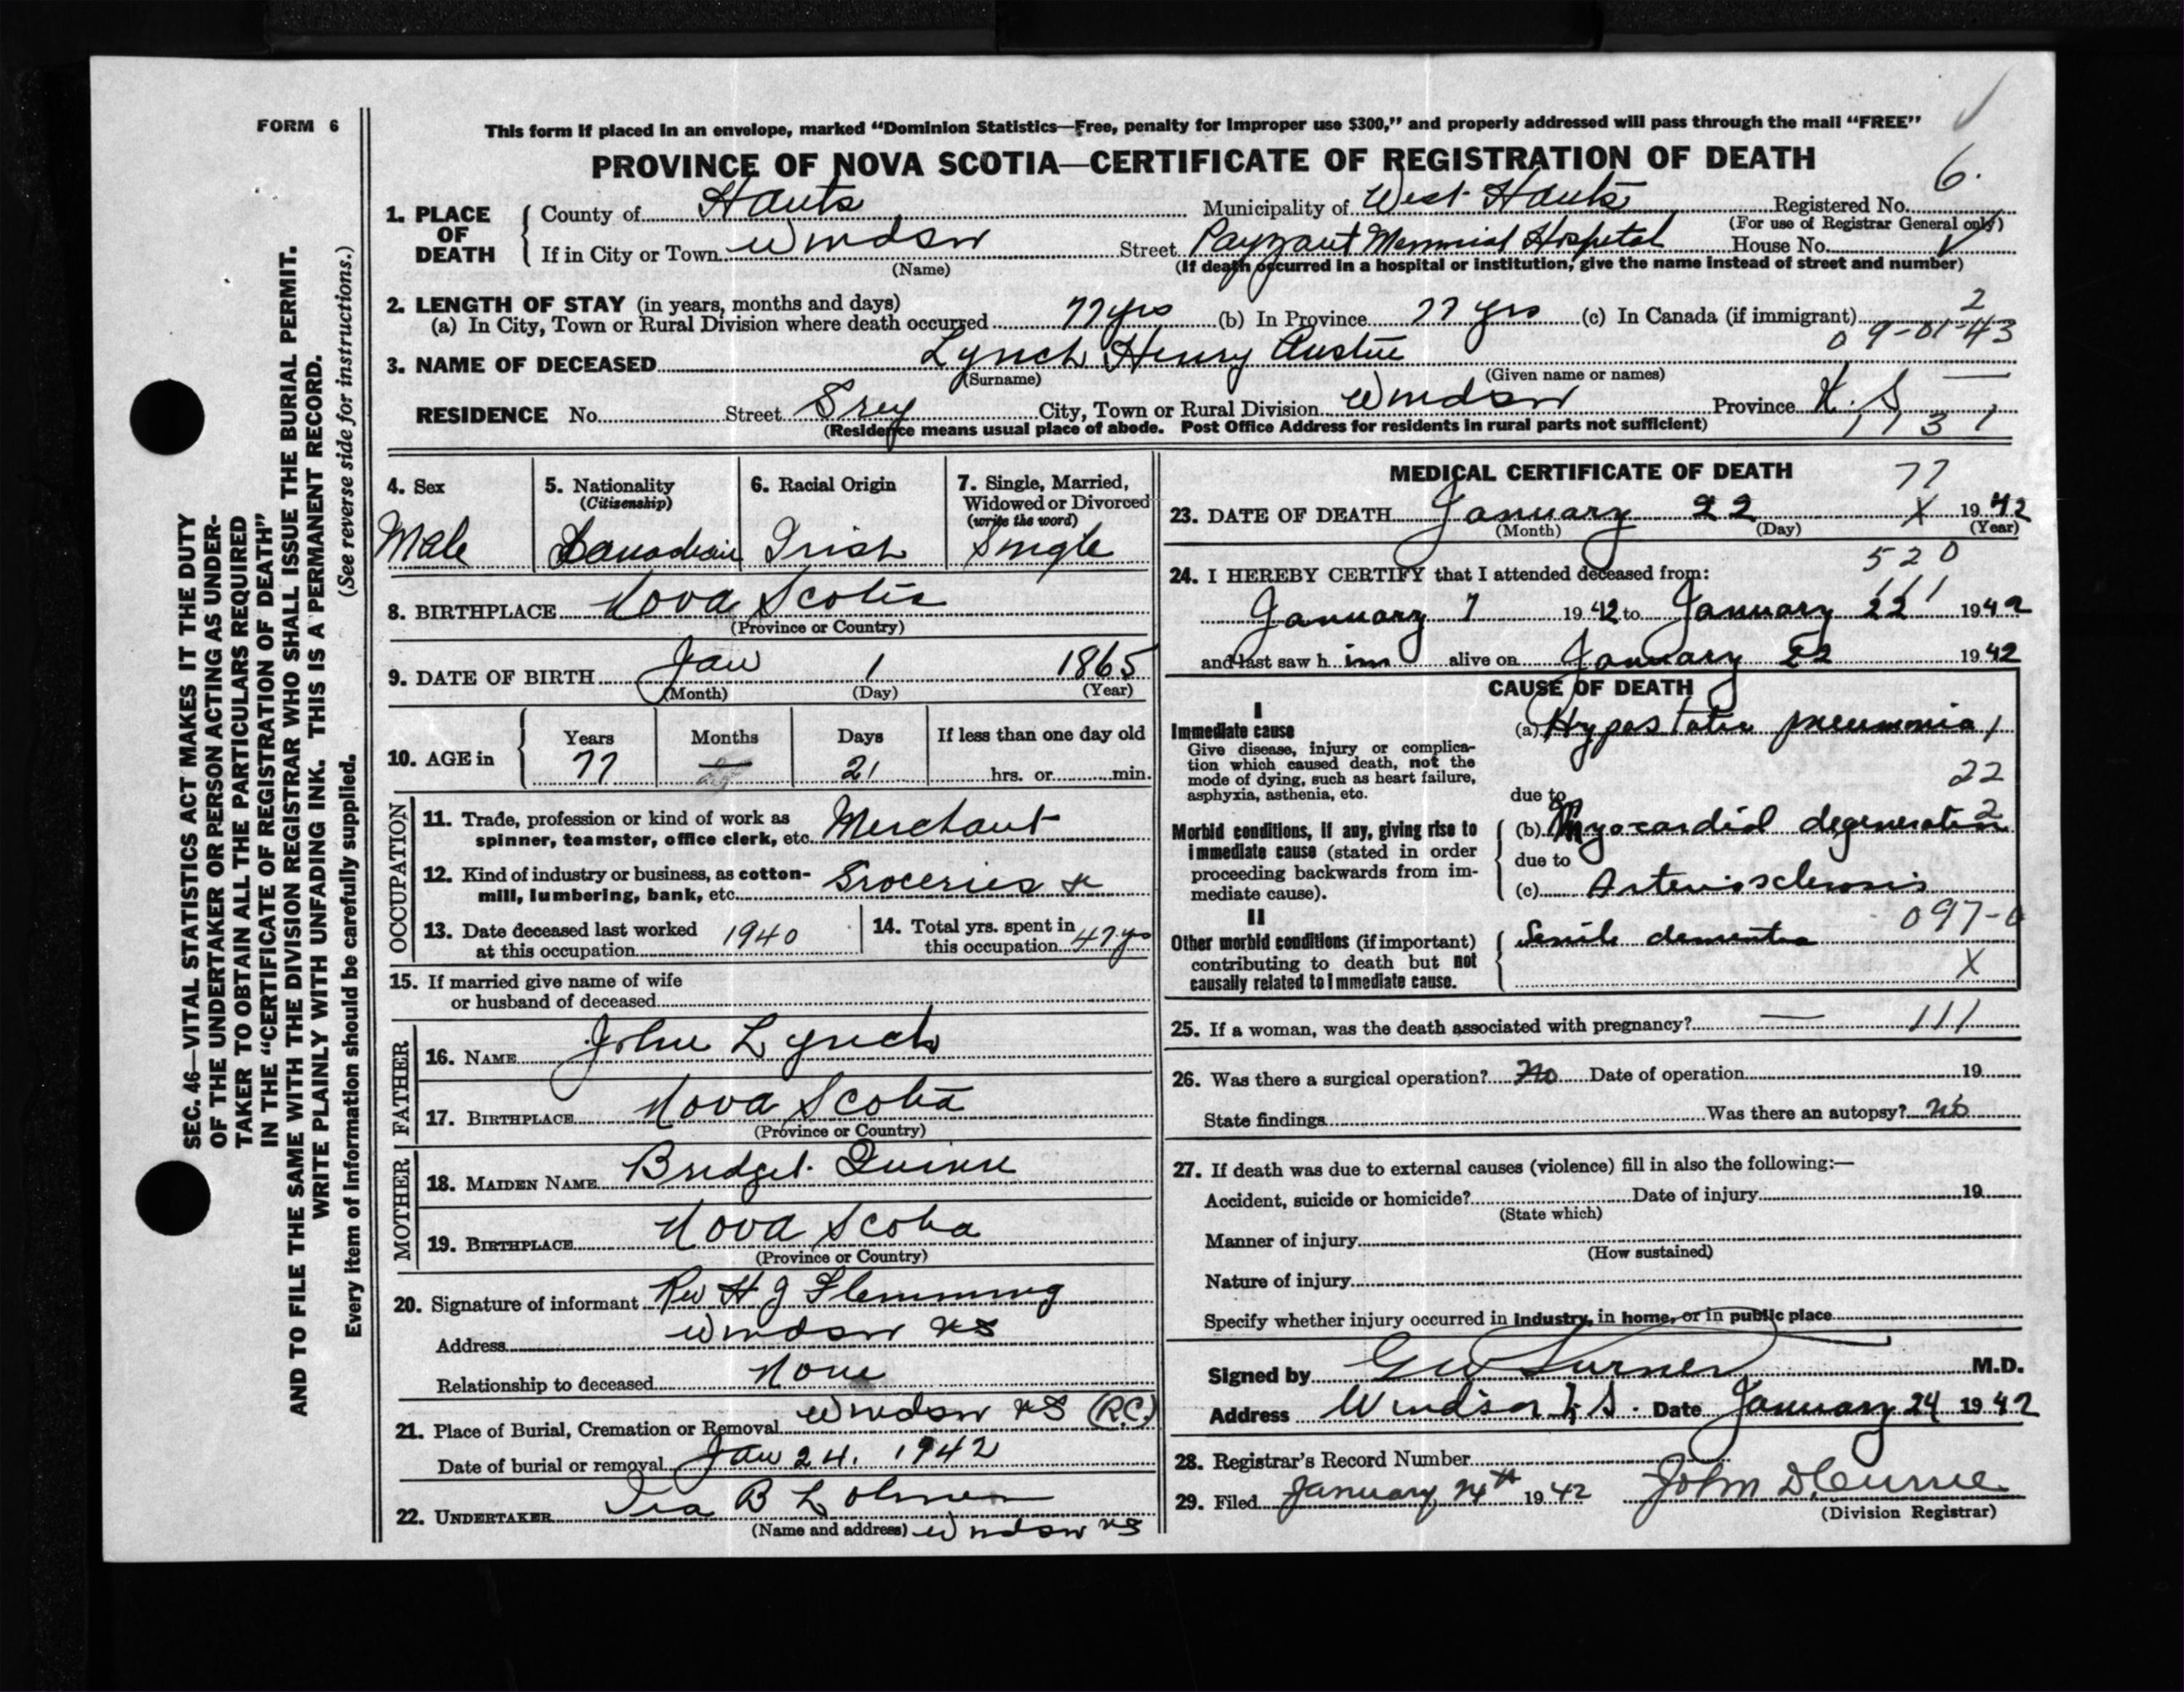 FORM 6
This form if placed in an envelope, marked "Dominion Statistics—Free, penalty for improper use $300," and properly addressed will pass through the mail "FREE"
PROVINCE OF NOVA SCOTIA—CERTIFICATE OF REGISTRATION OF DEATH
6.
1. PLACE OF DEATH
County of Hants Municipality of West Hants Registered No.
(For use of Registrar General only)
If in City or Town Windsor Street Payzant Memorial Hospital House No.
(Name) (If death occurred in a hospital or institution, give the name instead of street and number)
2. LENGTH OF STAY (in years, months and days)
(a) In City, Town or Rural Division where death occurred 77 yrs (b) In Province 77 yrs (c) In Canada (if immigrant) 2
09-01-43
3. NAME OF DECEASED Lynch Henry Austin
(Surname) (Given name or names)
RESIDENCE No. Street Grey City, Town or Rural Division Windsor Province N.S
(Residence means usual place of abode. Post Office Address for residents in rural parts not sufficient) 1131
4. Sex Male
5. Nationality (Citizenship) Canadian
6. Racial Origin Irish
7. Single, Married, Widowed or Divorced (write the word) Single
8. BIRTHPLACE Nova Scotia
(Province or Country)
9. DATE OF BIRTH Jan 1 1865
(Month) (Day) (Year)
10. AGE in Years Months Days If less than one day old
77 — 21 hrs. or min.
OCCUPATION
11. Trade, profession or kind of work as
spinner, teamster, office clerk, etc. Merchant
12. Kind of industry or business, as cotton-
mill, lumbering, bank, etc. Groceries &
13. Date deceased last worked
at this occupation 1940
14. Total yrs. spent in
this occupation 47 yrs
15. If married give name of wife
or husband of deceased
FATHER
16. NAME John Lynch
17. BIRTHPLACE Nova Scotia
(Province or Country)
MOTHER
18. MAIDEN NAME Bridget Quinn
19. BIRTHPLACE Nova Scotia
(Province or Country)
20. Signature of informant Rev H J Flemming
Address Windsor NS
Relationship to deceased None
21. Place of Burial, Cremation or Removal Windsor NS (R.C.)
Date of burial or removal Jan 24. 1942
22. UNDERTAKER Ira B
(Name and address) Windsor NS
MEDICAL CERTIFICATE OF DEATH 77
23. DATE OF DEATH January 22 X 1942
(Month) (Day) (Year)
520
24. I HEREBY CERTIFY that I attended deceased from:
111
January 7 1942 to January 22 1942
and last saw h im alive on January 22 1942
CAUSE OF DEATH
I
Immediate cause (a) Hypostatic pneumonia 1
Give disease, injury or complica-
tion which caused death, not the
mode of dying, such as heart failure,
asphyxia, asthenia, etc. 22
due to
Morbid conditions, if any, giving rise to (b) Myocardial degeneration 2
immediate cause (stated in order due to
proceeding backwards from im-
mediate cause). (c) Arteriosclerosis
II 097-0
Other morbid conditions (if important) Senile dementia
contributing to death but not X
causally related to immediate cause.
25. If a woman, was the death associated with pregnancy? — 111
26. Was there a surgical operation? No Date of operation 19
State findings Was there an autopsy? No
27. If death was due to external causes (violence) fill in also the following:—
Accident, suicide or homicide? Date of injury 19
(State which)
Manner of injury
(How sustained)
Nature of injury
Specify whether injury occurred in industry, in home, or in public place
Signed by G W Turner M.D.
Address Windsor N.S. Date January 24 1942
28. Registrar's Record Number
29. Filed January 24th 1942 John D. Currie
(Division Registrar)
SEC. 46—VITAL STATISTICS ACT MAKES IT THE DUTY
OF THE UNDERTAKER OR PERSON ACTING AS UNDER-
TAKER TO OBTAIN ALL THE PARTICULARS REQUIRED
IN THE "CERTIFICATE OF REGISTRATION OF DEATH"
AND TO FILE THE SAME WITH THE DIVISION REGISTRAR WHO SHALL ISSUE THE BURIAL PERMIT.
WRITE PLAINLY WITH UNFADING INK. THIS IS A PERMANENT RECORD.
Every item of information should be carefully supplied. (See reverse side for instructions.)